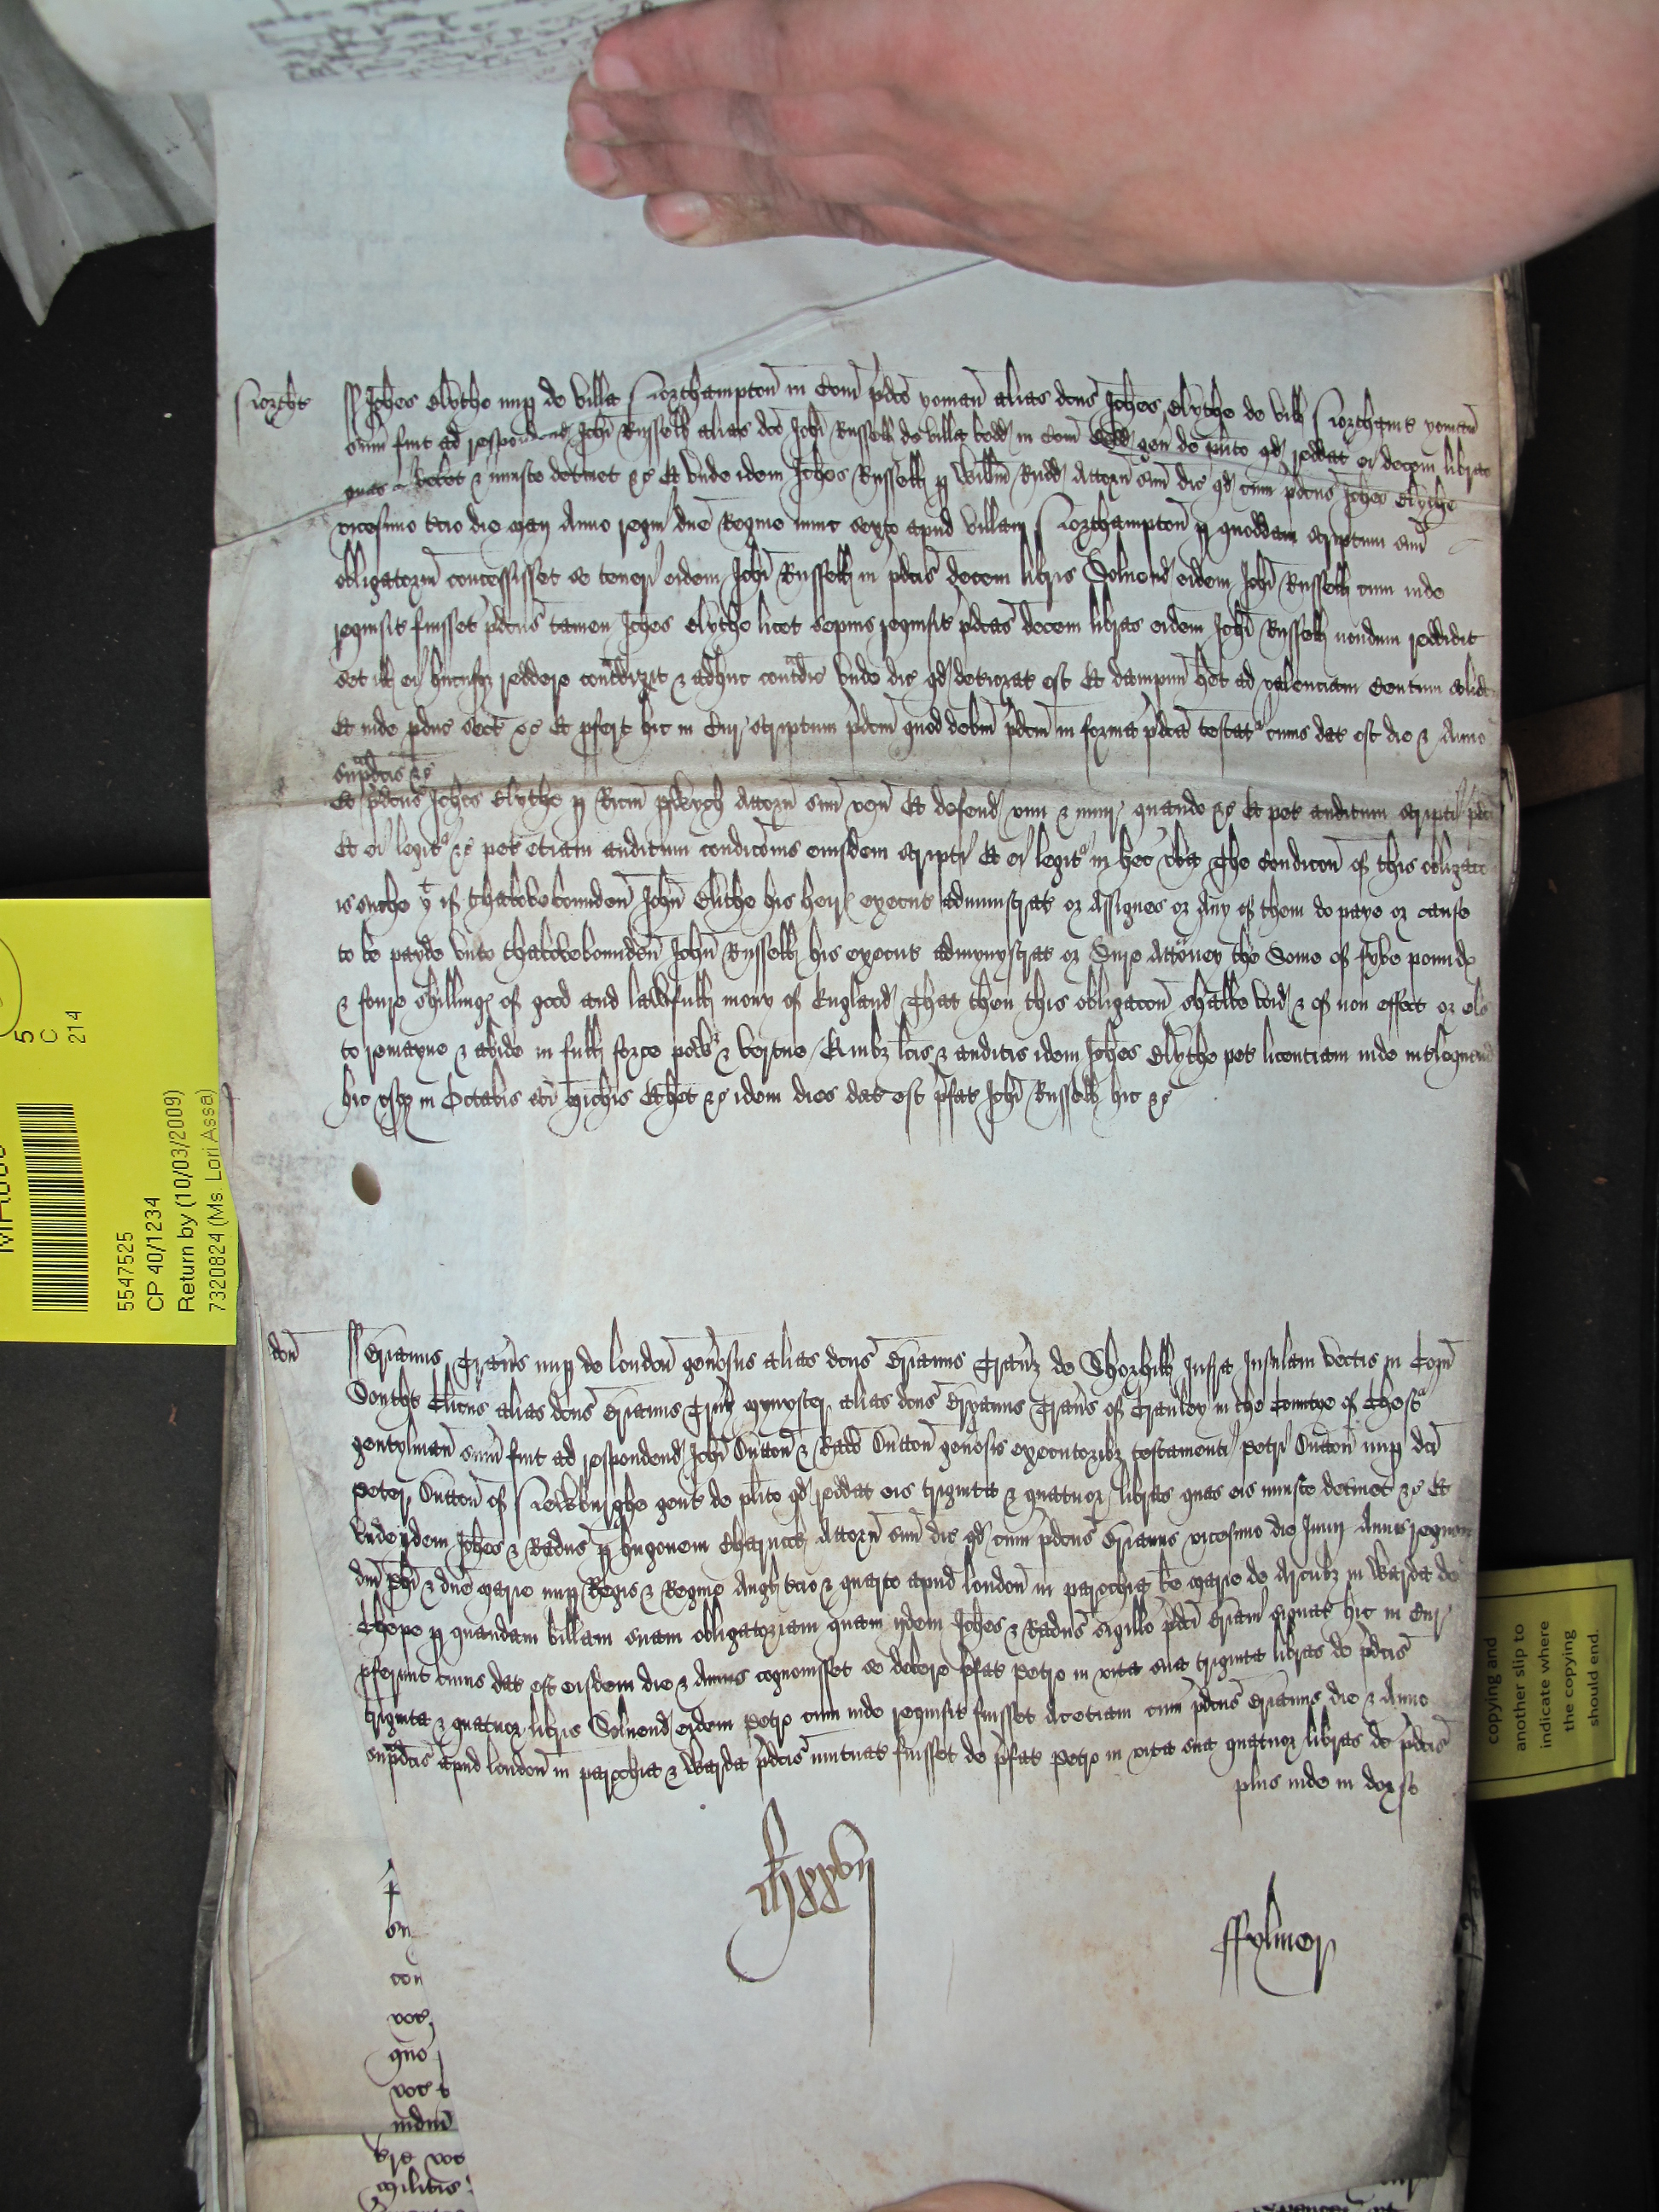 Northt
Joħes Elythe nup de villa Northampton in Com p̄dco yoman alias dcus Joħes Elythe de vill Northamt yoman
sum fuit ad respondend Joħi Russell alias dco Joħi Russell de villa Bedd in Com Bedd gen de plito qd reddat ei decem libras
quas ei debet & iniuste detinet &c Et unde idem Joħes Russell p Willm Rudd Attorn suu dic qd cum p̄dcus Joħes Elythe
vicesimo tcio die Maij Anno regni dne Regine nunc sexto apud villam Northampton p quoddam scriptum suu
obligatoriu concessisset se teneri eidem Joħi Russell in p̄dcis decem libris Solvend eidem Joħi Russell cum inde
requisit fuisset p̄dcus tamen Joħes Elythe licet sepius requisit p̄dcas decem libras eidem Joħi Russell nondum reddidit
set ill ei hucusq reddere contradixit & adhuc contradic unde dic qd deteriorat est Et dampnu het ad valenciam Centum solid
Et inde pduc sect &c Et pfert hic in Cur scriptum p̄dcm quod debm p̄dcm in forma p̄dca testat cuius dat est die & Anno
supradcis &c
Et p̄dcus Joħes Elythe p Ricm Attorn suu ven Et defend vim & iniur quando &c Et pet auditum scripti p̄dci
Et ei legit &c pet etiam auditum condicōnis eiusdem scripti Et ei legit in hec vba The Condicon of this obligacon
is suche yt if thabovebounden John Elithe his heir execut administrat or Assignes or Any of them do paye or cause
to be payde unto thabovebounden John Russell his execut admynystrat or Sure Attorney the Some of fyve pound
& foure shilling of good and lawfull mony of England That then this obligacon shalbe void & of non effect or els
to remayne & abide in full force power & vertue Quibz lcis & auditis idem Joħes Elythe pet licentiam inde intloquend
hic usq in Octabis sci Michis Et het &c idem dies dat est p̄fat Joħi Russell hic &c
don
Brianus nup de london generosus alias dcus Brianus de Shorhill Infra Insulam Vectis in Com
Southt Clicus alias dcus Brianus mynyster alias dcus Bryanus of Cranley in the Countye of Chestr
gentylman sum fuit ad respondend Joħi Dutton & Rado Dutton generosis executoribz testamenti Petri Dutton nup dci
Peter Dutton of Newburghe gent de plito qd reddat eis triginta & quatuor libras quas eis iniuste detinet &c Et
unde ijdem Joħes & Radus p hugonem Charnock Attorn suu dic qd cum p̄dcus Brianus vicesimo die Junij Annis regnor
dni Phi & dne Marie nup Regis & Regine Angl tcio & quarto apud london in parochia be Marie de Arcubz in Warda de
Chepe p quandam billam suam obligatoriam quam ijdem Joħes & Radus sigillo p̄dci Briani signat hic in Cur
pferunt cuius dat est eisdem die & Annis cognovisset se debere p̄fat Petro in vita sua triginta libras de p̄dcis
triginta & quatuor libris Solvend eidem Petro cum inde requisit fuisset Acetiam cum p̄dcus Brianus die & Anno
supradcis apud london in parochia & Warda p̄dcis mutuat fuisset de p̄fat Petro in vita sua quatuor libras de p̄dcis
plus inde in dorso
ffylmer
con
quo
militis
5
C
214
5547525
CP 40/1234
Return by (10/03/2009)
7320824 (Ms. Lori Assa)
copying and
another slip to
indicate where
the copying
should end.